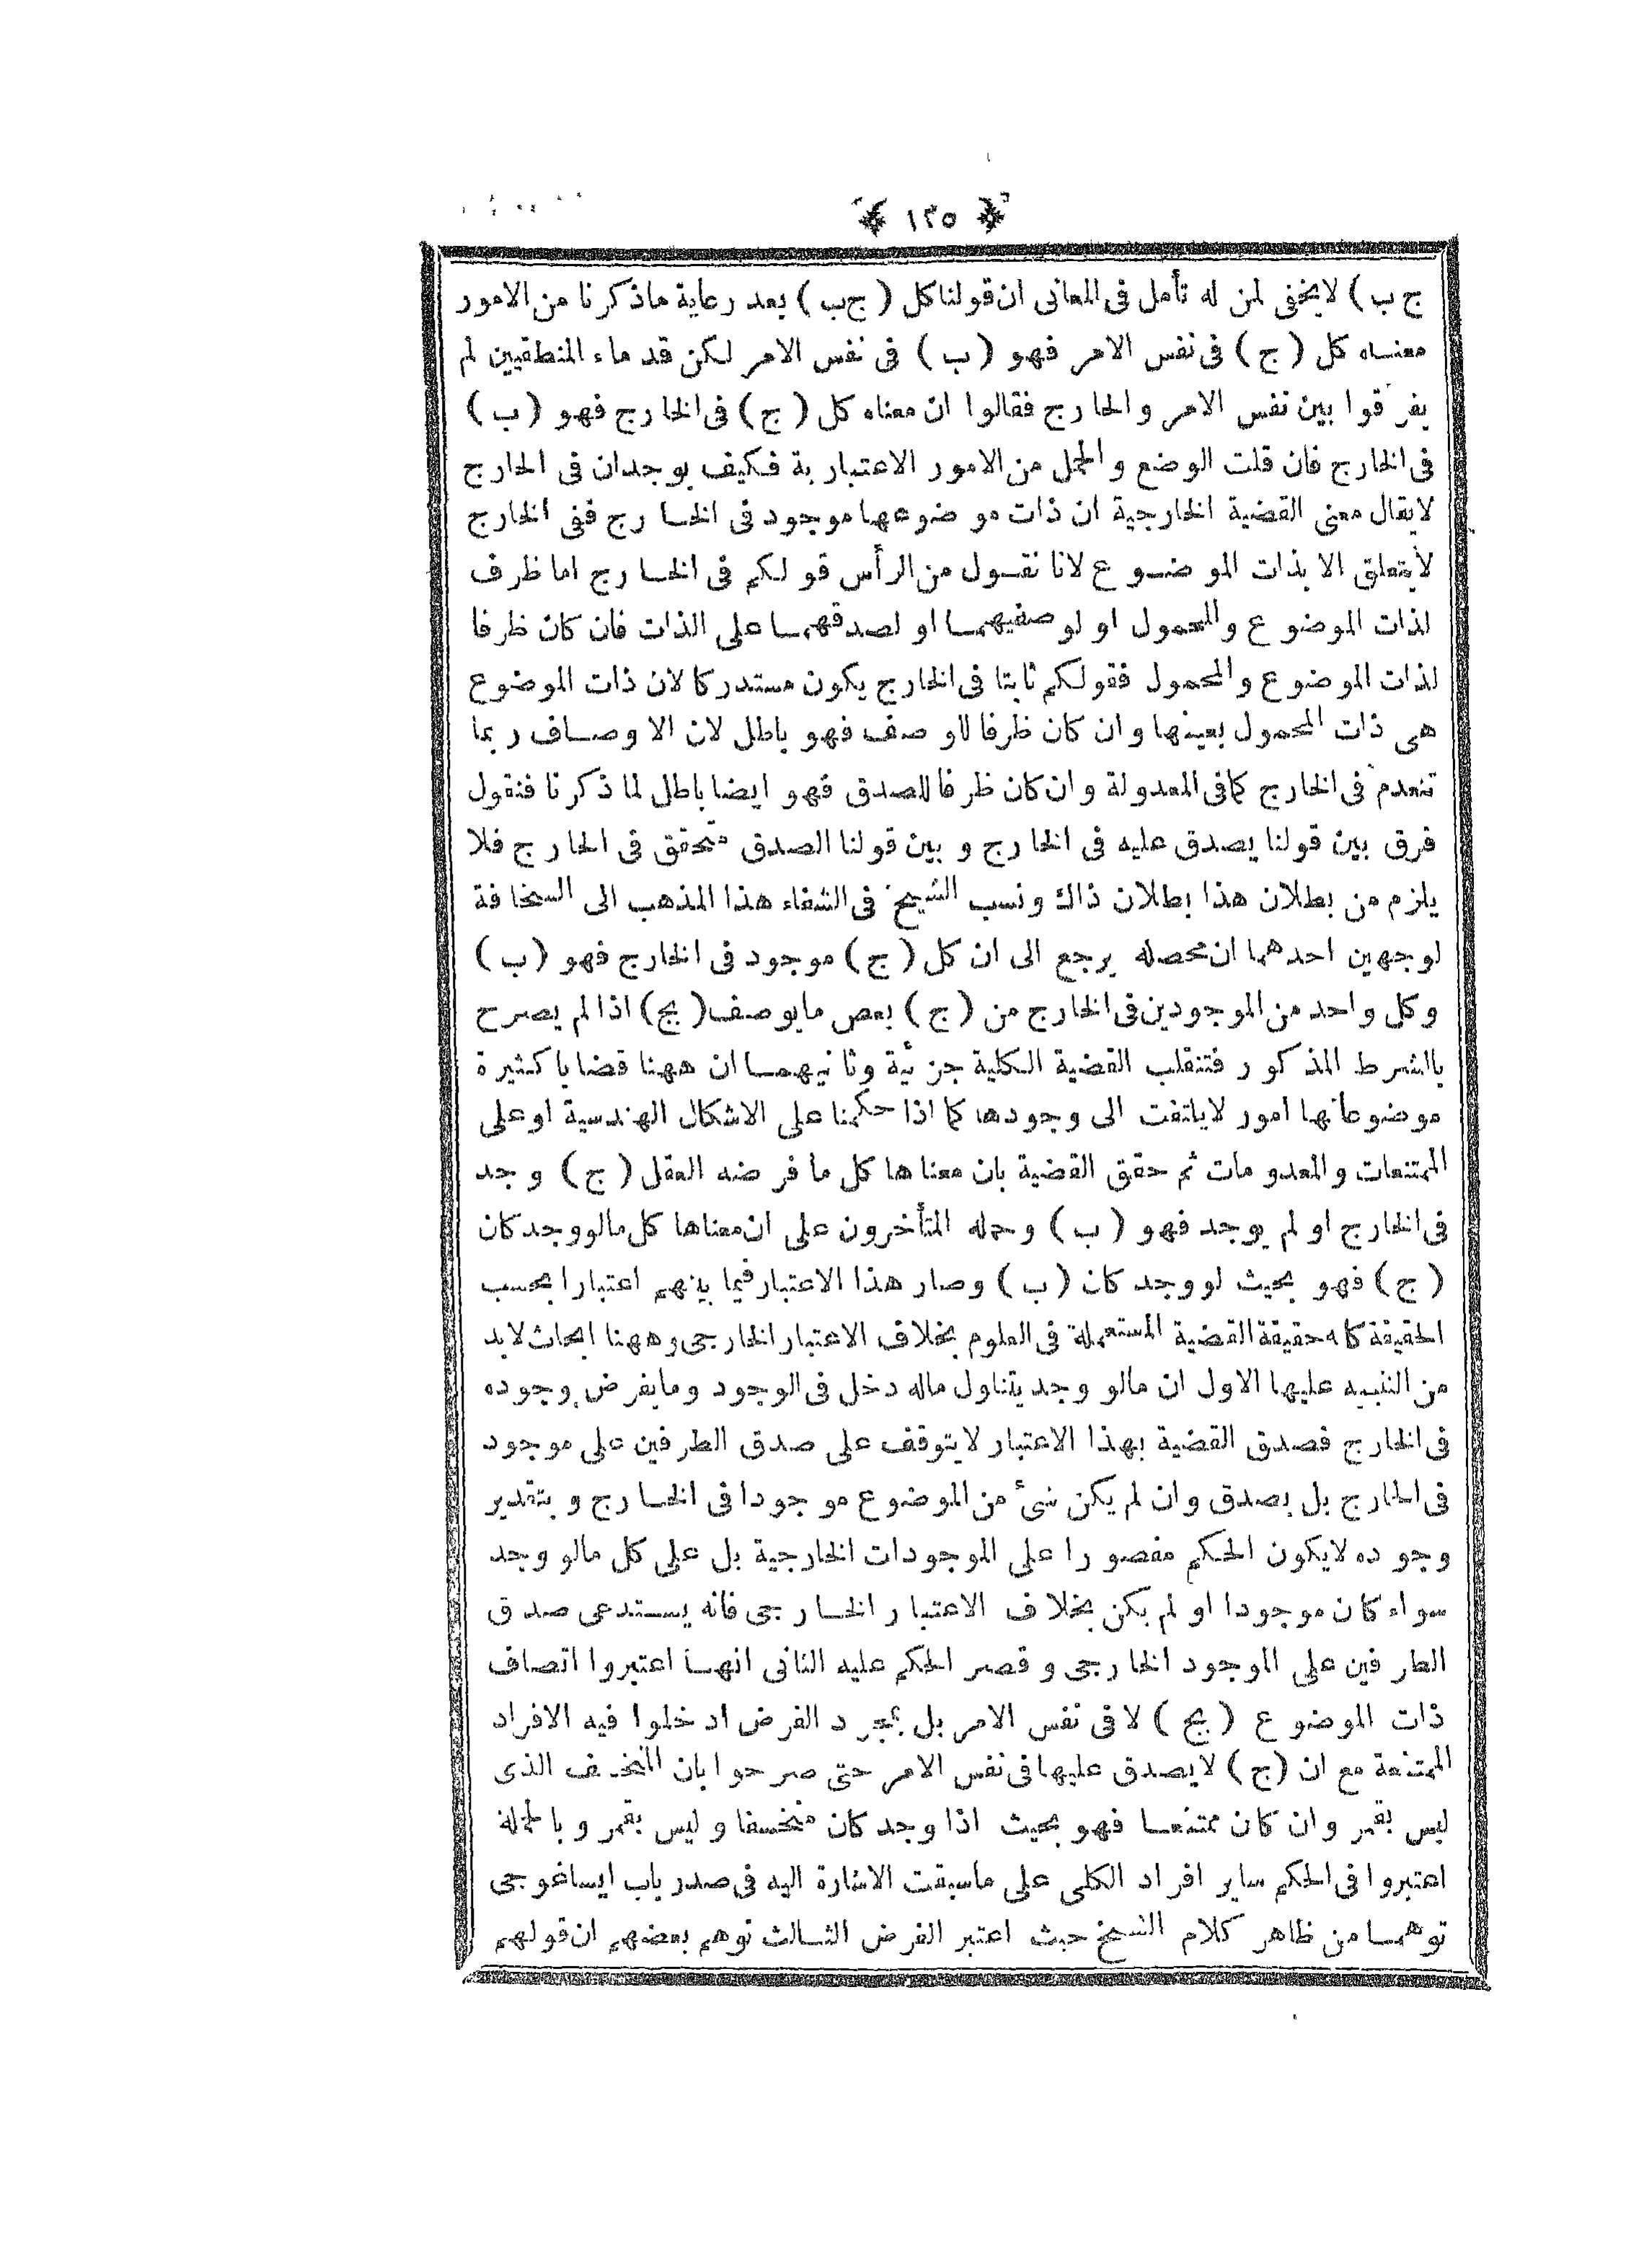 ﴿ ١٣٥ ﴾
ج ب ) لا يخفى لمن له تأمل فى المعانى ان قولنا كل ( ج ب ) بعد رعاية ماذكرنا من الامور
معناه كل ( ج ) فى نفس الامر فهو ( ب ) فى نفس الامر لكن قدماء المنطقيين لم
يفرقوا بين نفس الامر والخارج فقالوا ان معناه كل ( ج ) فى الخارج فهو ( ب )
فى الخارج فان قلت الوضع والحمل من الامور الاعتبارية فكيف يوجدان فى الخارج
لايقال معنى القضية الخارجية ان ذات موضوعها موجود فى الخارج ففى الخارج
لايتعلق الا بذات الموضوع لانا نقول من الرأس قولكم فى الخارج اما ظرف
لذات الموضوع والمحمول او لوصفيهما او لصدقهما على الذات فان كان ظرفا
لذات الموضوع والمحمول فقولكم ثابتا فى الخارج يكون مستدركا لان ذات الموضوع
هى ذات المحمول بعينها وان كان ظرفا للوصف فهو باطل لان الاوصاف ربما
تنعدم فى الخارج كما فى المعدولة وان كان ظرفا للصدق فهو ايضا باطل لما ذكرنا فنقول
فرق بين قولنا يصدق عليه فى الخارج وبين قولنا الصدق متحقق فى الخارج فلا
يلزم من بطلان هذا بطلان ذاك ونسب الشيخ فى الشفاء هذا المذهب الى السخافة
لوجهين احدهما ان محصله يرجع الى ان كل ( ج ) موجود فى الخارج فهو ( ب )
وكل واحد من الموجودين فى الخارج من ( ج ) بعض مايوصف ( بج ) اذا لم يصرح
بالشرط المذكور فتنقلب القضية الكلية جزئية وثانيهما ان ههنا قضايا كثيرة
موضوعاتها امور لايلتفت الى وجودها كما اذا حكمنا على الاشكال الهندسية او على
الممتنعات والمعدومات ثم حقق القضية بان معناها كل ما فرضه العقل ( ج ) وجد
فى الخارج او لم يوجد فهو ( ب ) وحمله المتأخرون على ان معناها كل مالو وجد كان
( ج ) فهو بحيث لو وجد كان ( ب ) وصار هذا الاعتبار فيما بينهم اعتبارا بحسب
الحقيقة كانه حقيقة القضية المستعملة فى العلوم بخلاف الاعتبار الخارجى وههنا ابحاث لابد
من التنبيه عليها الاول ان مالو وجد يتناول ماله دخل فى الوجود ومايفرض وجوده
فى الخارج فصدق القضية بهذا الاعتبار لايتوقف على صدق الطرفين على موجود
فى الخارج بل يصدق وان لم يكن شئ من الموضوع موجودا فى الخارج وبتقدير
وجوده لايكون الحكم مقصورا على الموجودات الخارجية بل على كل مالو وجد
سواء كان موجودا او لم يكن بخلاف الاعتبار الخارجى فانه يستدعى صدق
الطرفين على الموجود الخارجى وقصر الحكم عليه الثانى انهما اعتبروا اتصاف
ذات الموضوع ( بج ) لا فى نفس الامر بل بمجرد الفرض ادخلوا فيه الافراد
الممتنعة مع ان ( ج ) لايصدق عليها فى نفس الامر حتى صرحوا بان المنخسف الذى
ليس بقمر وان كان ممتنعا فهو بحيث اذا وجد كان منخسفا وليس بقمر وبالجملة
اعتبروا فى الحكم ساير افراد الكلى على ماسبقت الاشارة اليه فى صدر باب ايساغوجى
توهما من ظاهر كلام الشيخ حيث اعتبر الفرض الثالث توهم بعضهم ان قولهم